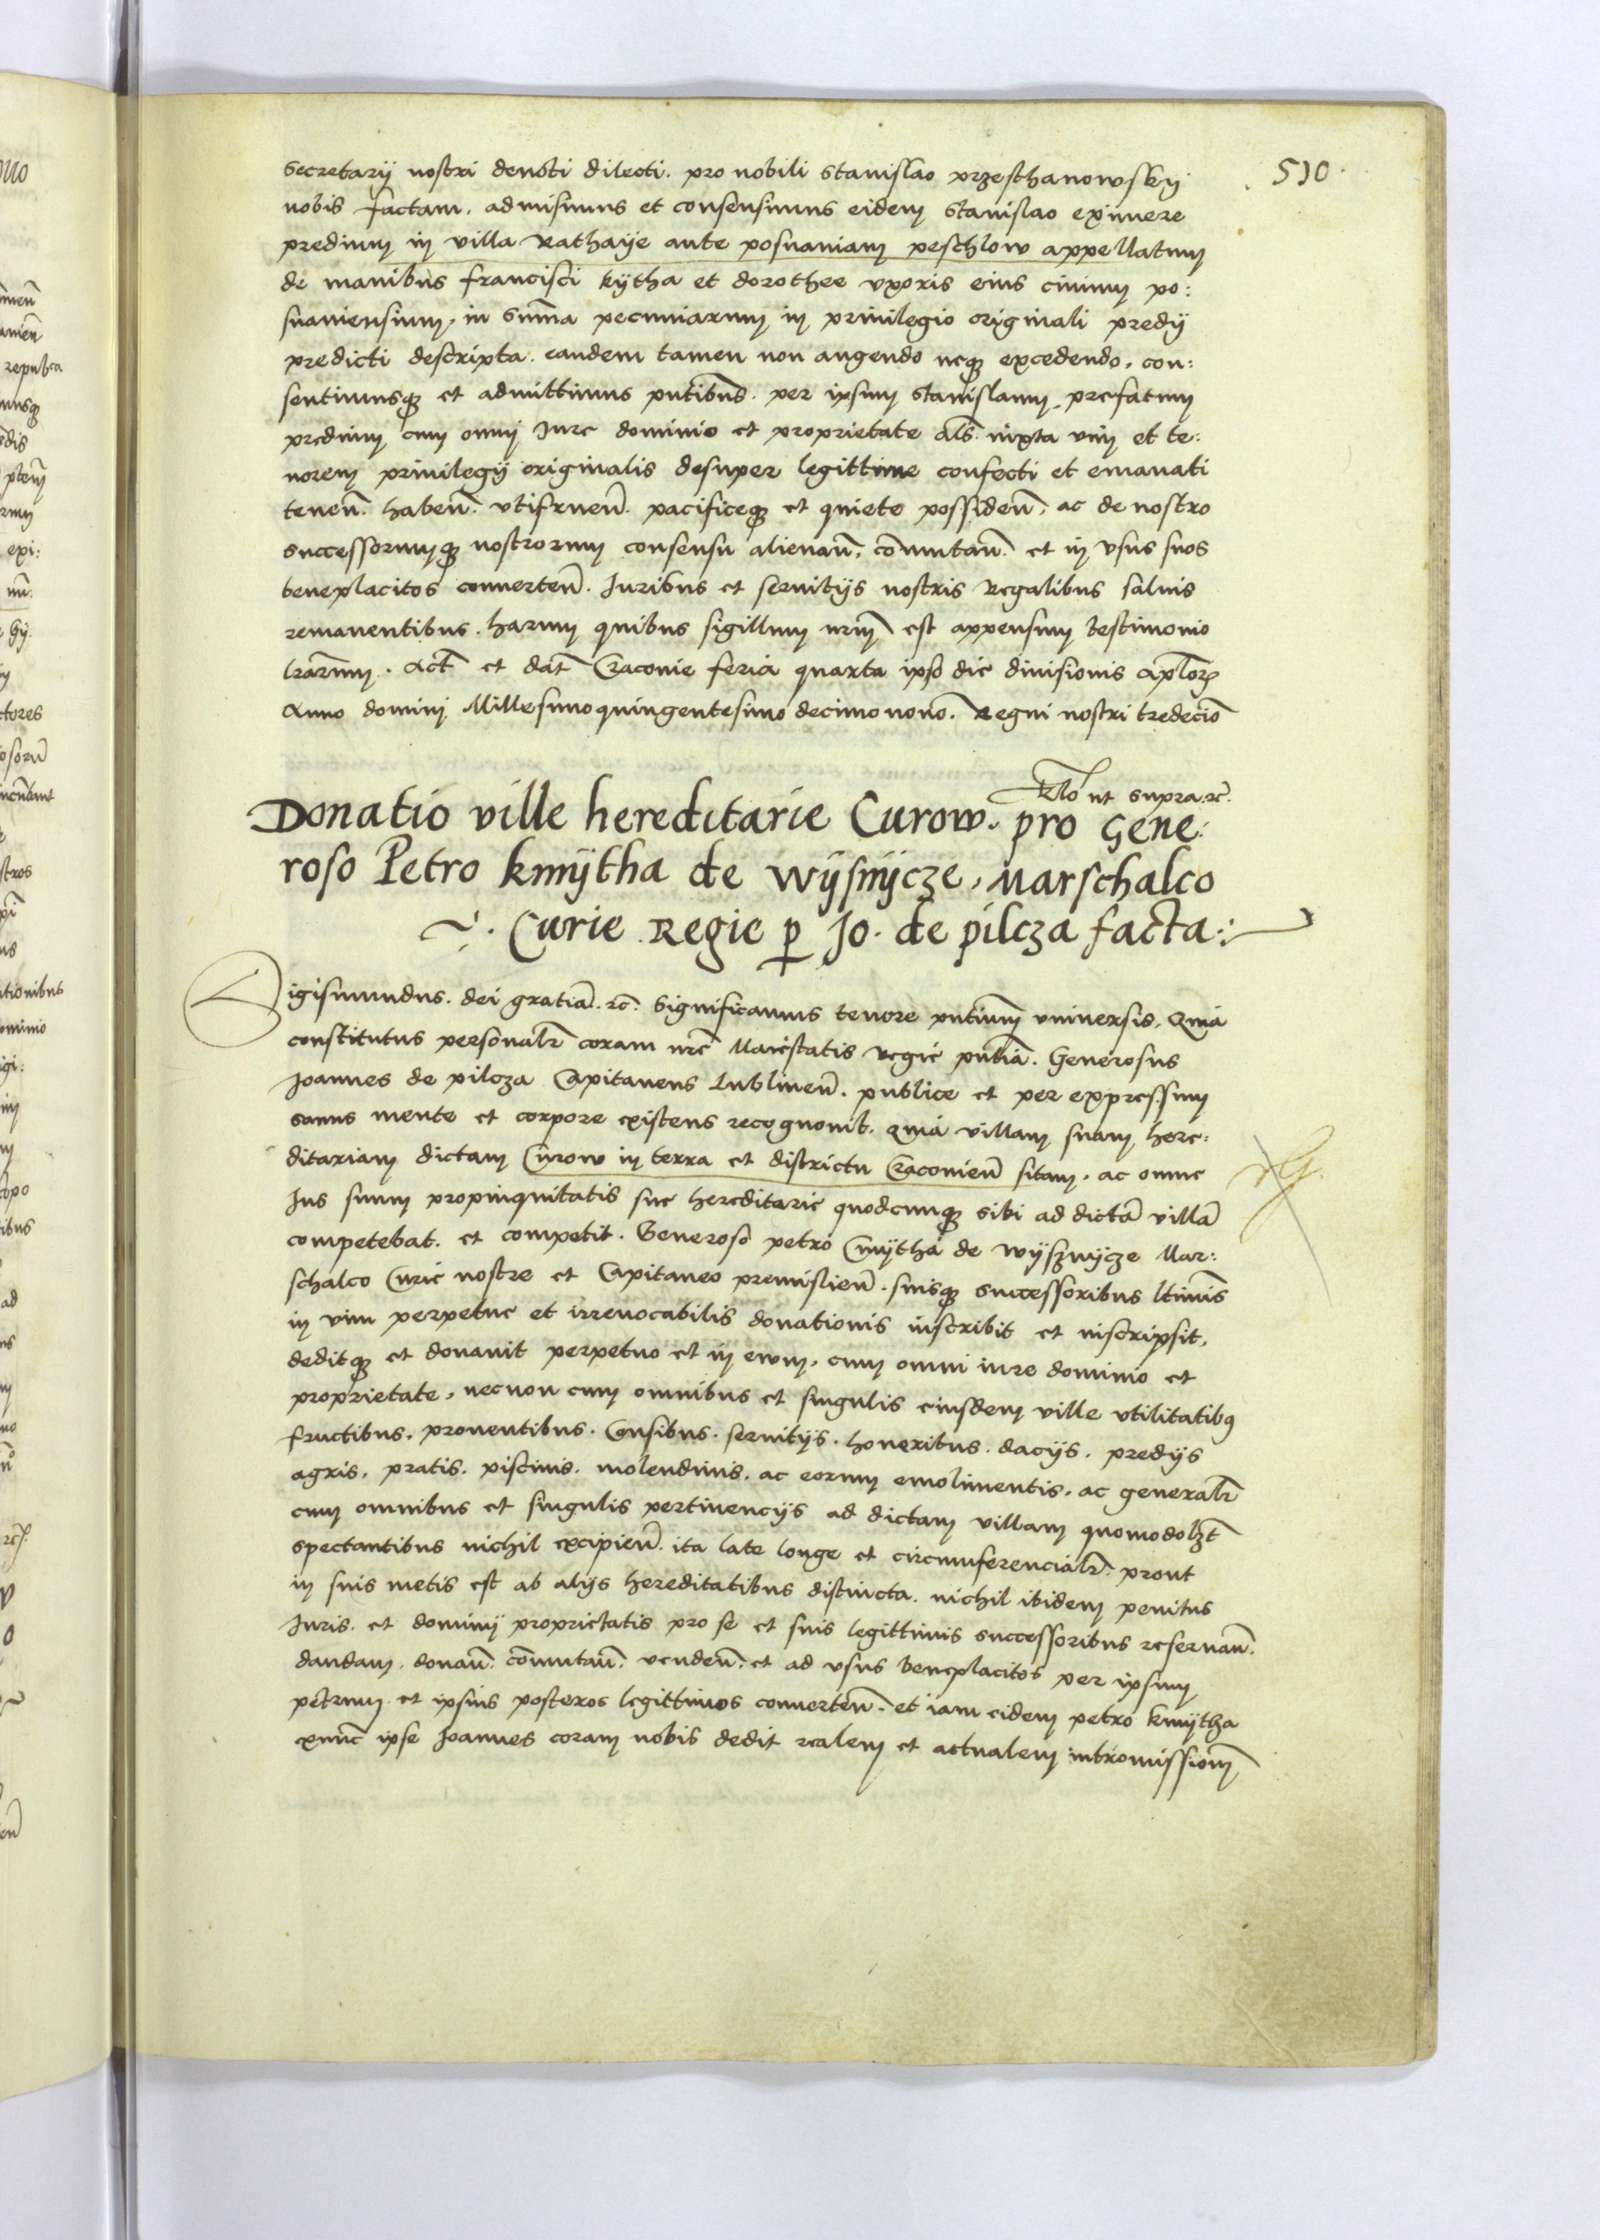 510.
secretarij nostri deuoti dilecti. pro nobili Stanislao przesthanowskij
nobis factam. admisimus et consensimus eidem Stanislao eximere
predium in villa Rathaije ante posnaniam peschlow appellatum
de manibus francisci kÿtha et dorothee vxoris eius ciuium po:
snaniensium. in summa pecuniarum in priuilegio originali predij
predicti descripta. eandem tamen non augendo neqꝫ excedendo. con:
sentimusqꝫ et admittimus pn̄tibus. per ipsum Stanislaum prefatum
predium cum omni Iure dominio et proprietate als̄. iuxta vim et te:
norem priuilegij originalis desuper legittime confecti et emanati
tenen̄. haben̄. vtifruen̄. pacificeqꝫ et quiete possiden̄. ac de nostro
successorumqꝫ nostrorum consensu alienan̄. cōmutan̄. et in vsus suos
beneplacitos conuerten̄. Iuribus et seruitijs nostris Regalibus saluis
remanentibus. harum quibus sigillum nr̄um est appensum testimonio
lr̄arum. Act̄ et dat̄ Cracouie feria quarta ipso die diuisionis Apl̄oꝝ
Anno domini Millesimoquingentesimo decimonono. Regni nostri tredecīo
Rl̄o ut supra. ꝛc̄.
Donatio ville hereditarie Curow. pro Gene:
roso Petro kmÿtha de wÿsnÿcze, Marschalco
Curie Regie ꝑ Jo. de pilcza facta:
Sigismundus. dei gratia. ꝛc̄. Significamus tenore pn̄tium vniuersis. Quia
constitutus personalr̄ coram nr̄e Maiestatis regie pn̄tia. Generosus
Joannes de pilcza Capitaneus Lublinen̄. publice et per expressum
sanus mente et corpore existens recognouit. quia villam suam here:
ditariam dictam Curow in terra et districtu Cracouien̄ sitam. ac omne
Ius suum propinquitatis siue hereditarie quodcumqꝫ sibi ad dictā villā
competebat. et competit. Generoso petro Cmÿtha de wÿsznÿcze Mar:
schalco Curie nostre et Capitaneo premislien̄. suisqꝫ successoribus lt̄imis
in vim perpetue et irreuocabilis donationis inscribit et inscripsit.
deditqꝫ et donauit perpetuo et in euum. cum omni iure dominio et
proprietate. necnon cum omnibus et singulis eiusdem ville vtilitatibꝫ
fructibus. prouentibus. Censibus. seruitijs. honeribus. dacijs. predijs
agris. pratis. piscinis. molendinis. ac eorum emolimentis. ac generalr̄
cum omnibus et singulis pertinencijs ad dictam villam quomodolꝫt
spectantibus nichil excipien̄. ita late longe et circumferencialr̄. prout
in suis metis est ab alijs hereditatibus distincta. nichil ibidem penitus
Iuris. et dominij proprietatis pro se et suis legittimis successoribus reseruan̄.
dandam. donan̄. cōmutan̄. venden̄. et ad vsus beneplacitos per ipsum
petrum et ipsius posteros legittimos conuerten̄. et iam eidem petro kmÿtha
exnūc ipse Joannes coram nobis dedit realem et actualem intromissionem